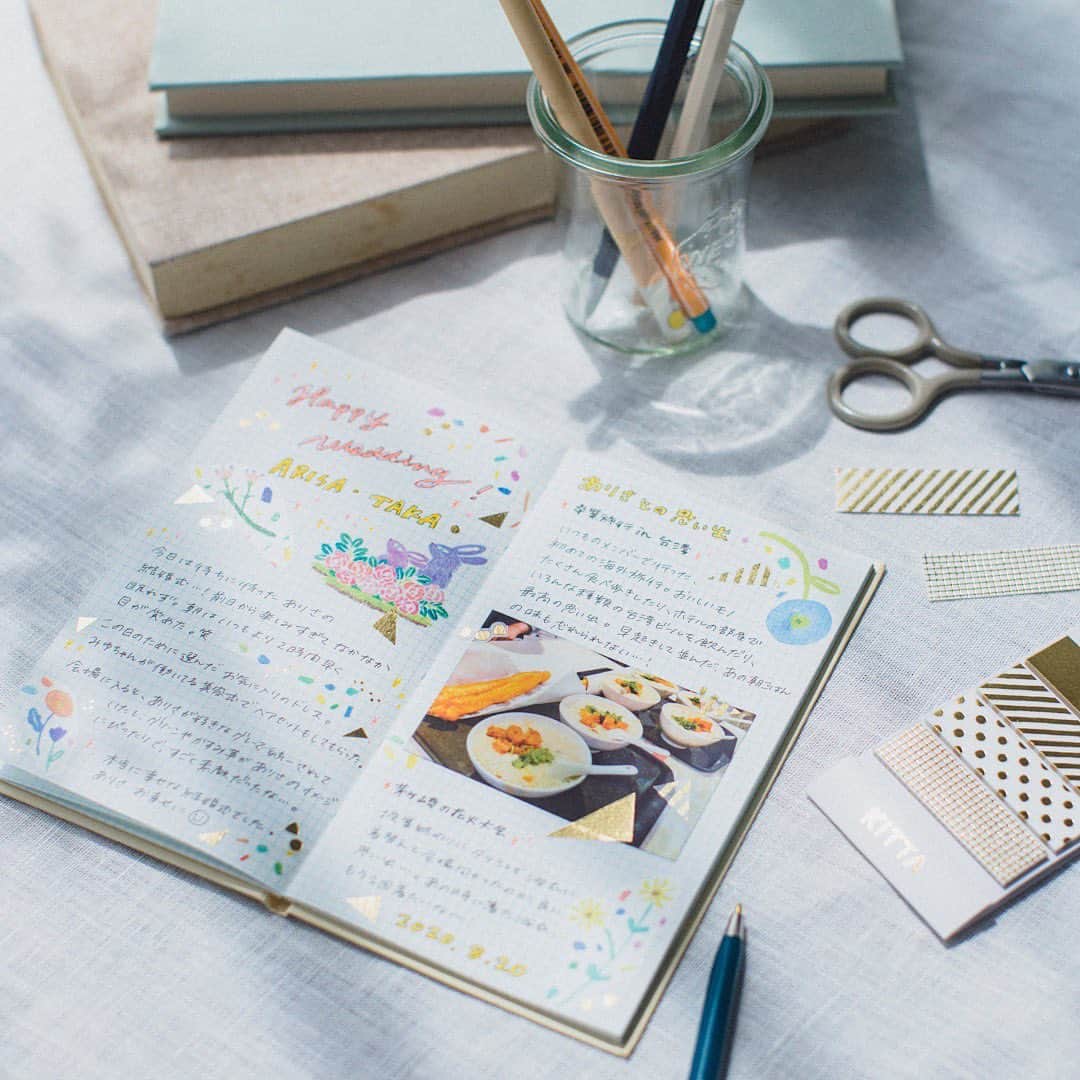 Happy
Wedding!
ARISA・TAKA.
今日は待ちに待ったありさの
結婚式！前日から楽しみすぎてなかなか
眠れず。朝はいつもより2時間早く
目が覚めた。笑
この日のために選んだお気に入りのドレス。
みゆちゃんが働いてる美容室でヘアセットもしてもらった。
会場に入ると、ありさが好きな
ぴったりで、すごく素敵だったな…。
本当に幸せな結婚式でした。
ありさ お幸せに
ありさとの思い出
卒業旅行 in 台湾
いつものメンバーで行った、
初めての海外旅行。おいしいもの
たくさん食べ歩きしたり、ホテルの部屋で
いろんな種類の台湾ビールを飲んだり、
最高の思い出。早起きして並んだ、あの朝ごはん
の味も忘れられない…！
の花火大会
2020.8.20
KITTA